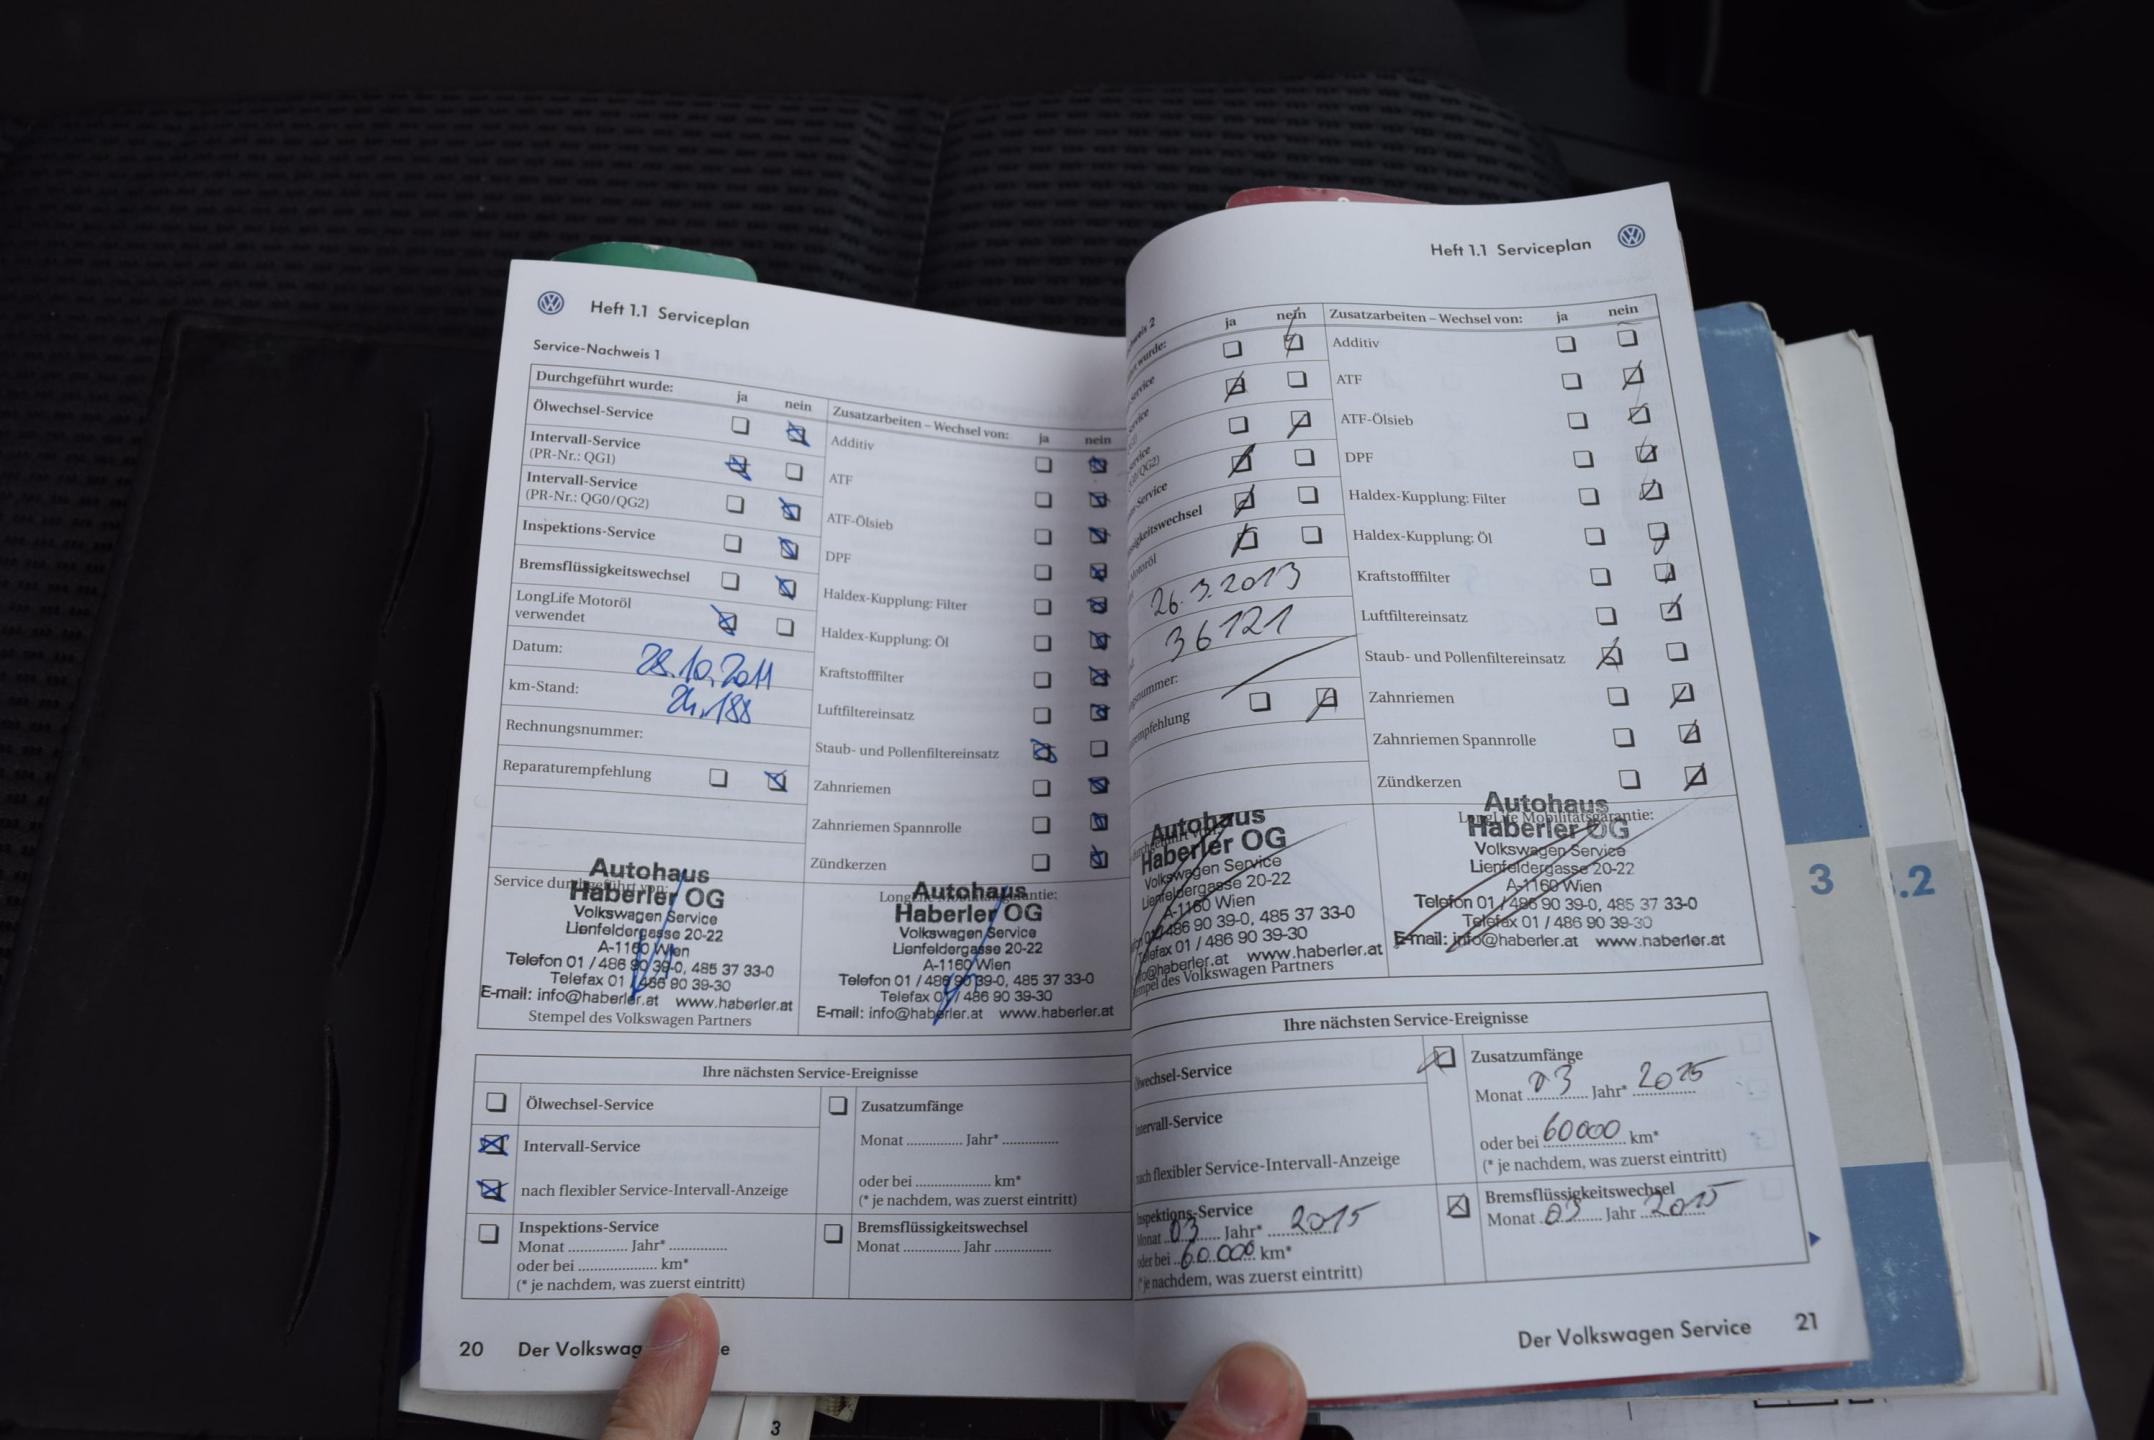 Heft 1.1 Serviceplan
Service-Nachweis 1
Durchgeführt wurde: ja nein
Ölwechsel-Service
Intervall-Service
(PR-Nr.: QG1)
Intervall-Service
(PR-Nr.: QG0/QG2)
Inspektions-Service
Bremsflüssigkeitswechsel
LongLife Motoröl
verwendet
Datum: 28.10.2011
km-Stand: 24.188
Rechnungsnummer:
Reparaturempfehlung
Zusatzarbeiten – Wechsel von: ja nein
Additiv
ATF
ATF-Ölsieb
DPF
Haldex-Kupplung: Filter
Haldex-Kupplung: Öl
Kraftstofffilter
Luftfiltereinsatz
Staub- und Pollenfiltereinsatz
Zahnriemen
Zahnriemen Spannrolle
Zündkerzen
Service durchgeführt von:
Autohaus
Haberler OG
Volkswagen Service
Lienfeldergasse 20-22
A-1160 Wien
Telefon 01 / 486 90 39-0, 485 37 33-0
Telefax 01 / 486 90 39-30
E-mail: info@haberler.at www.haberler.at
Stempel des Volkswagen Partners
Autohaus
Haberler OG
Volkswagen Service
Lienfeldergasse 20-22
A-1160 Wien
Telefon 01 / 486 90 39-0, 485 37 33-0
Telefax 01 / 486 90 39-30
E-mail: info@haberler.at www.haberler.at
Ihre nächsten Service-Ereignisse
Ölwechsel-Service
Intervall-Service
nach flexibler Service-Intervall-Anzeige
Inspektions-Service
Monat .............. Jahr* ..............
oder bei .................... km*
(* je nachdem, was zuerst eintritt)
Zusatzumfänge
Monat .............. Jahr* ..............
oder bei .................... km*
(* je nachdem, was zuerst eintritt)
Bremsflüssigkeitswechsel
Monat .............. Jahr ..............
20 Der Volkswag
Heft 1.1 Serviceplan
2
wurde: ja nein
Service
QG2)
Service
Motoröl
26.3.2013
36121
Zusatzarbeiten – Wechsel von: ja nein
Additiv
ATF
ATF-Ölsieb
DPF
Haldex-Kupplung: Filter
Haldex-Kupplung: Öl
Kraftstofffilter
Luftfiltereinsatz
Staub- und Pollenfiltereinsatz
Zahnriemen
Zahnriemen Spannrolle
Zündkerzen
Autohaus
Haberler OG
Volkswagen Service
Lienfeldergasse 20-22
A-1160 Wien
486 90 39-0, 485 37 33-0
Telefax 01 / 486 90 39-30
info@haberler.at www.haberler.at
des Volkswagen Partners
LongLife Mobilitätsgarantie:
Autohaus
Haberler OG
Volkswagen Service
Lienfeldergasse 20-22
A-1160 Wien
Telefon 01 / 486 90 39-0, 485 37 33-0
Telefax 01 / 486 90 39-30
E-mail: info@haberler.at www.haberler.at
Ihre nächsten Service-Ereignisse
Ölwechsel-Service
Intervall-Service
nach flexibler Service-Intervall-Anzeige
Inspektions-Service
Monat 03 Jahr* 2015
oder bei 60.000 km*
(* je nachdem, was zuerst eintritt)
Zusatzumfänge
Monat 03 Jahr* 2015
oder bei 60000 km*
(* je nachdem, was zuerst eintritt)
Bremsflüssigkeitswechsel
Monat 03 Jahr 2015
Der Volkswagen Service 21
3
.2
3